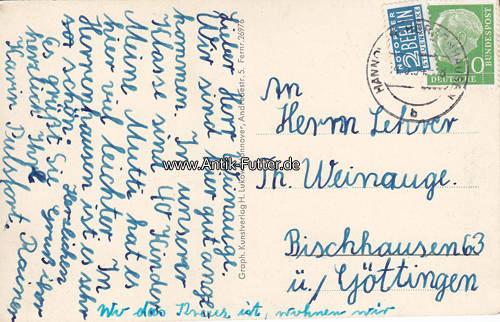 Lieber Herr Weinauge.
Wir sind hier gut ange-
kommen. In unserer
Klasse sind 40 Kinder
Meine Mutti hat es
hier viel leichter. In
Herrenhausen ist es sehr
schön.
Es grüßt Sie
herzlich Ihr
Herzlichen Gruß Ihr
Wo das Kreuz ist, wohnen wir
Graph. Kunstverlag H. Hannover, Andreaestr. 5. Fernr. 26976
NOTOPFER
2 BERLIN
STEUERMARKE
HANNO
b
DEUTSCHE
BUNDESPOST
10
An
Herrn Lehrer
Th. Weinauge.
Bischhausen 63
ü./Göttingen
www.Antik-Futter.de